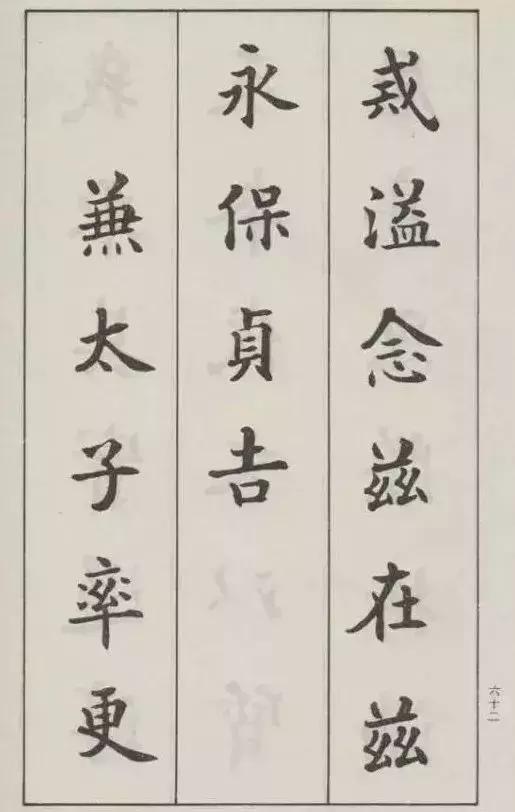 戒溢念茲在茲
永保貞吉
兼太子率更
六十二